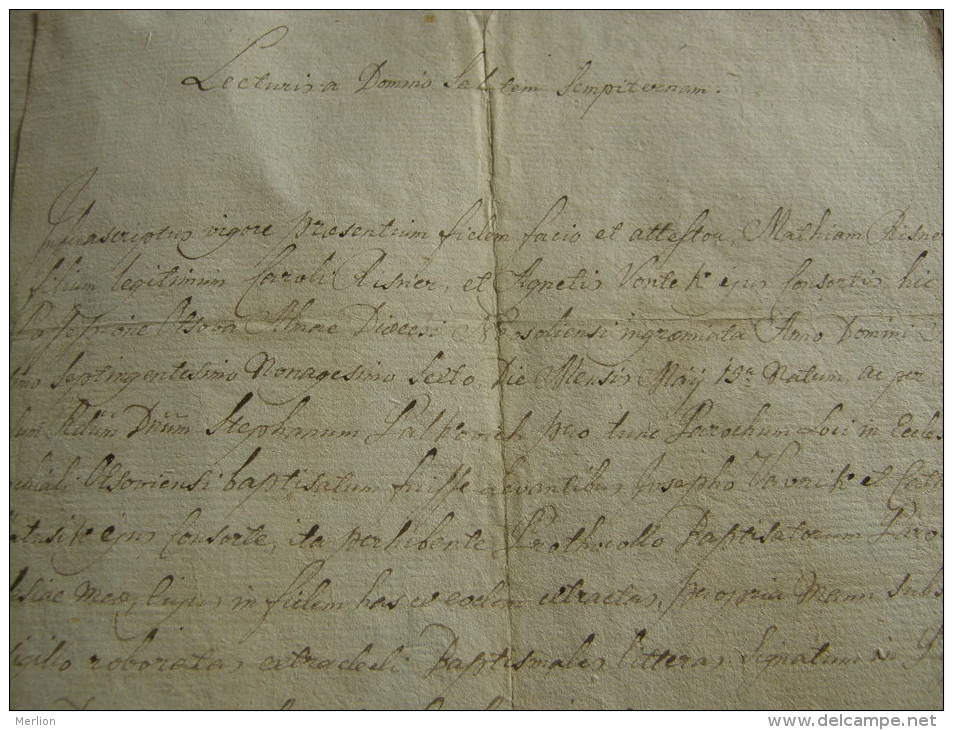 Lecturis a Domino Salutem Sempiternam.
Infrascriptus vigore praesentium fidem facio et attestor, Mathiam Risner
filium legitimum Caroli Risnier, et Agnetis Vontek ejus Consortis, hic
Possessione Olsova Almae Dioecesi Neosoliensi ingremiata Anno Domini
Septingentesimo Nonagesimo Sexto, Die Mensis Maÿ 19a Natum, ac per
Stephanum Palkovich pro tunc Parochum Loci in Eccles
baptisatum fuisse Levantibus Josepho Vavrik et Cath
ejus Consorte, ita perhibente Prothocollo Baptisatorum Paro
siae meae, Cujus in fidem has ex eodem extractas, propria Manu Subs
igillo roboratas extradedi Baptismales litteras, Signatum in
Merlion
www.delcampe.net